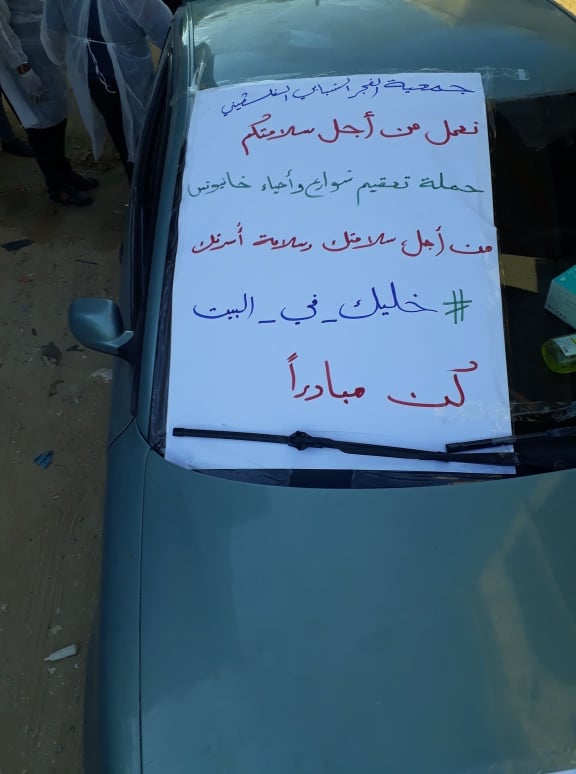 جمعية الفجر الشبابي الفلسطيني
نعمل من أجل سلامتكم
حملة تعقيم شوارع وأحياء خانيونس
من أجل سلامتك وسلامة أسرتك
# خليك_في_البيت
كن مبادراً